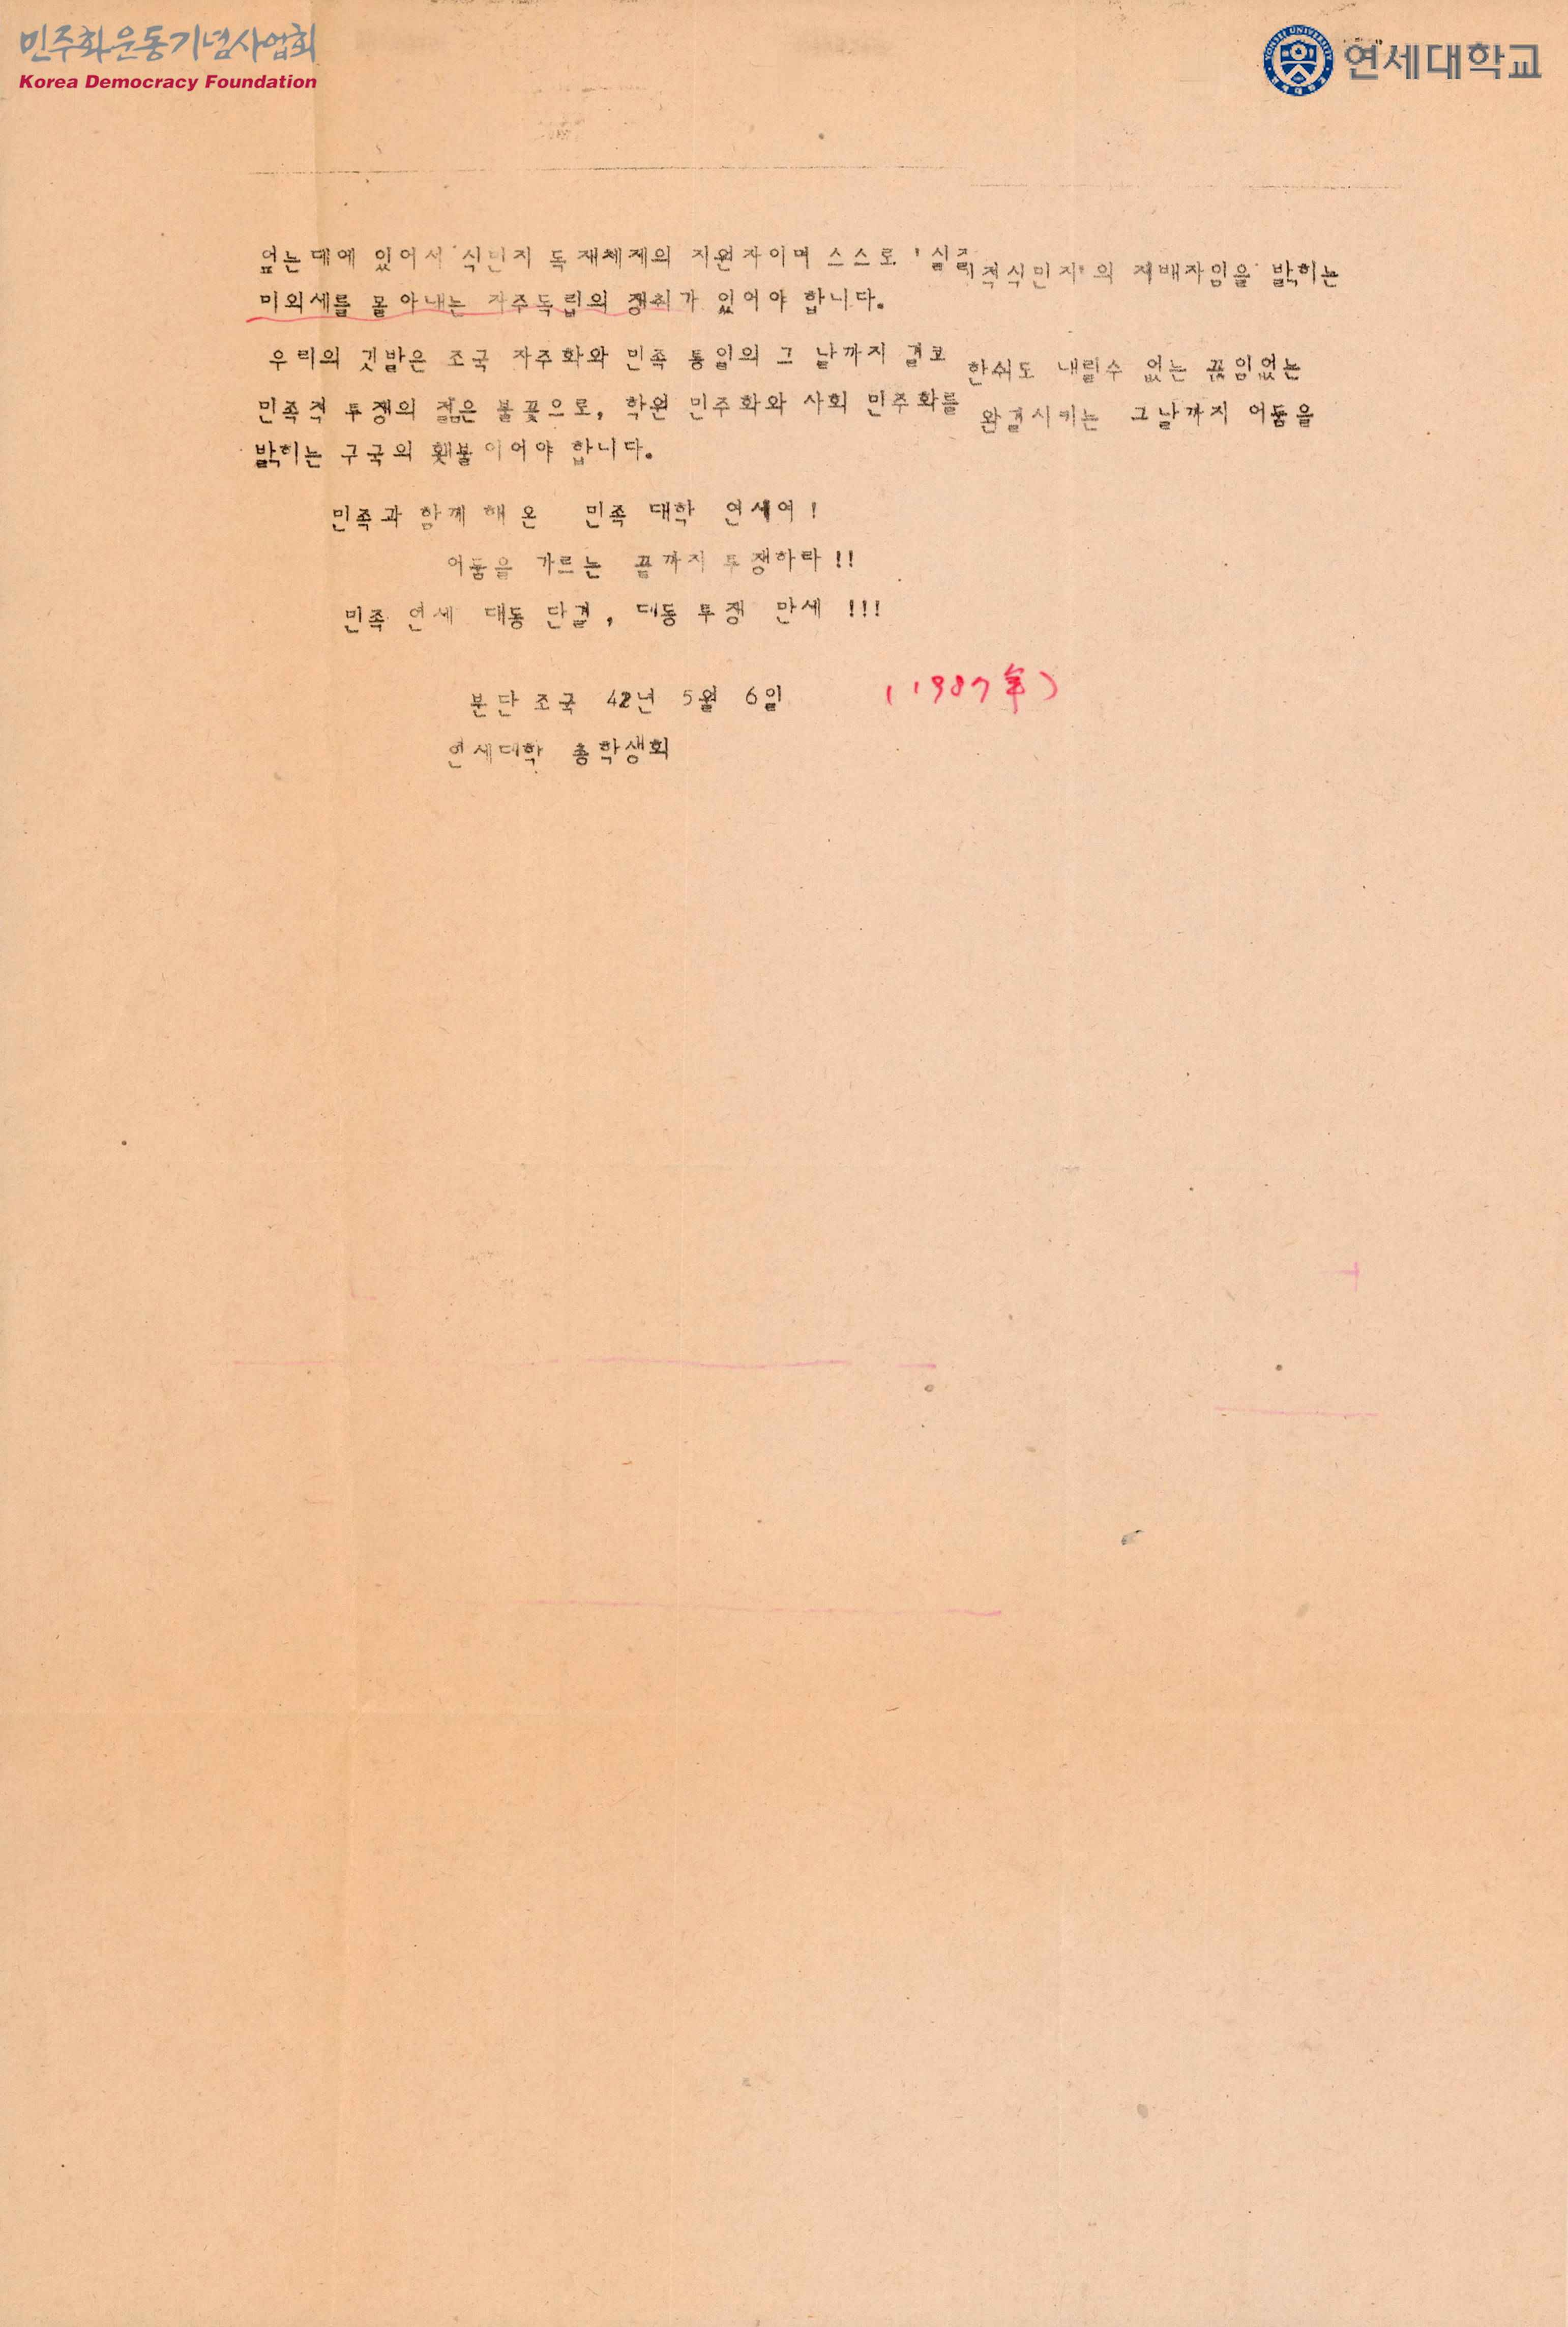 민주화운동기념사업회
Korea Democracy Foundation
YONSEI UNIVERSITY
연세대학교
연세대학교
없는데에 있어서 식민지 독재체제의 지원자이며 스스로 '실질적식민지'의 지배자임을 밝히는
미외세를 몰아내는 자주독립의 쟁취가 있어야 합니다.
우리의 깃발은 조국 자주화와 민족 통일의 그 날까지 결코 한숨도 내릴수 없는 끊임없는
민족적 투쟁의 젊은 불꽃으로, 학원 민주화와 사회 민주화를 완결시키는 그날까지 어둠을
밝히는 구국의 횃불이어야 합니다.
민족과 함께 해 온 민족 대학 연세여!
어둠을 가르는 끝까지 투쟁하라!!
민족 연세 대동 단결, 대동 투쟁 만세 !!!
분단 조국 42년 5월 6일 (1987年)
연세대학 총학생회